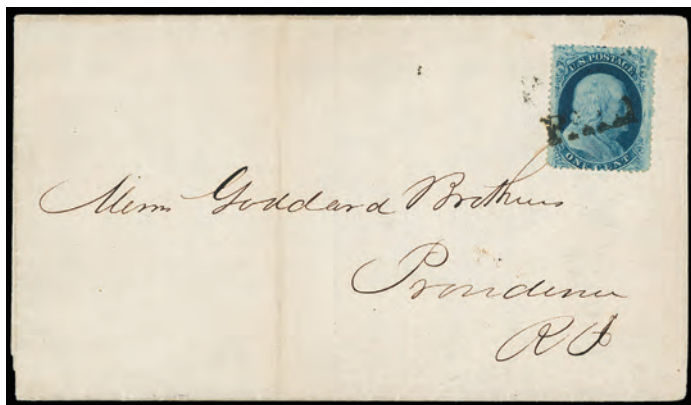 U.S. POSTAGE
Paid
ONE CENT
Messrs Goddard Brothers
Providence
R I